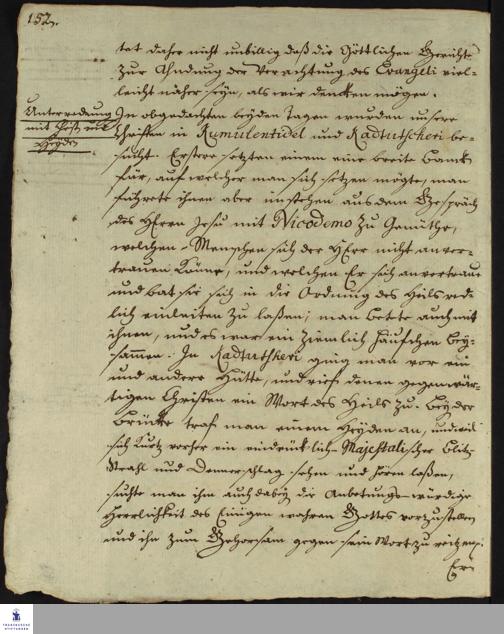 152.
tet daher nicht unbillig daß die Göttlichen Gerichte
zur Ahndung der Verachtung des Evangeli viel-
leicht näher seyn, als wir dencken mögen.
Unterredung
mit Christ. und
Heyden
In obgedachten beyden Tagen wurden unsere
Christen in Rumulentidel und Kadtutscheri be-
sucht. Erstere setzten einem eine breite Banck
für, auf welcher man sich setzen mögte, man
führete ihnen aber im stehen aus dem Gespräch
des HErrn Jesu mit Nicodemo zu Gemüthe,
welchen Menschen sich der HErr nicht anver-
trauen könne, und welchen Er sich anvertraue
und bat sie sich in die Ordnung des Heils red-
lich einleiten zu laßen; man betete auch mit
ihnen, und es war ein ziemlich Häufchen bey-
sammen. In Kadtutsheri ging man vor ein
und andere Hütte, und rief denen gegenwär-
tigen Christen ein Wort des Heils zu. Bey der
Brücke traf man einen Heyden an, und weil
sich kurtz vorher ein eindrücklich-Majestätischer Blitz-
strahl und Donnerschlag sehen und hören laßen,
suchte man ihm auch dabey die Anbetungs-würdige
Herrlichkeit des Einigen wahren Gottes vorzustellen
und ihn zum Gehorsam gegen sein Wort zu reitzen.
Er
FRANCKESCHE
STIFTUNGEN